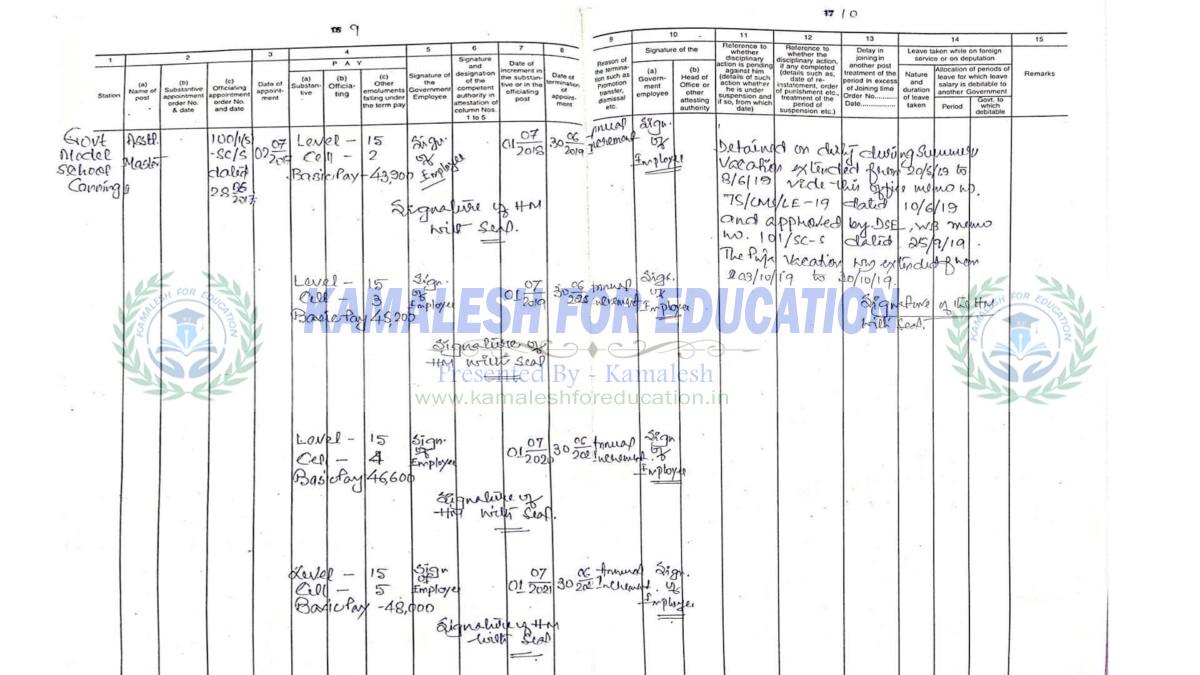 9
17 10
1
2
3
4
5
6
7
8
9
10
11
12
13
14
15
Station
(a) Name of post
(b) Substantive appointment order No. & date
(c) Officiating appointment order No. and date
Date of appoint-ment
P A Y
(a) Substan-tive
(b) Officia-ting
(c) Other emoluments falling under the term pay
Signature of the Government Employee
Signature and designation of the competent authority in attestation of column Nos. 1 to 5
Date of increment in the substan-tive or in the officiating post
Date of termination of appoint-ment
Reason of the termina-tion such as Promotion transfer, dismissal etc.
Signature of the
(a) Govern-ment employee
(b) Head of Office or other attesting authority
Reference to whether disciplinary action is pending against him (details of such action whether he is under suspension and if so, from which date)
Reference to whether the disciplinary action, if any completed (details such as, date of re-instatement, order of punishment etc., treatment of the period of suspension etc.)
Delay in joining in another post treatment of the period in excess of Joining time Order No............ Date................
Leave taken while on foreign service or on deputation
Nature and duration of leave taken
Allocation of periods of leave for which leave salary is debitable to another Government
Period
Govt. to which debitable
Remarks
Govt Model School Canning
Asstt. Master
100(1)/5 -SC/S dated 28 06 2017
02 07
Level - 15
Cell - 2
Basic Pay - 43,900
Sign. of Employee
Signature of HM with Seal.
01 07 2018
30 06 2019
Annual Increment
Sign. of Employee
Detained on duty during Summer
Vacation extended from 20/5/19 to
8/6/19 vide this office memo no.
75/CMS/LE-19 dated 10/6/19
and approved by DSE, WB memo
no. 101/SC-S dated 25/9/19.
The Puja Vacation was extended from
03/10/19 to 30/10/19.
Signature of the HM
with Seal.
Level - 15
Cell - 3
Basic Pay 45,200
Sign. of Employee
01 07 2019
30 06
Annual Increment
Sign. of Employee
Signature of
HM with Seal
KAMALESH FOR EDUCATION
KAMALESH FOR EDUCATION
KAMALESH FOR EDUCATION
Presented By - Kamalesh
www.kamaleshforeducation.in
Level - 15
Cell - 4
Basic Pay 46,600
Sign. of Employee
01 07 2020
30 06
Annual Increment.
Sign of Employee
Signature of
HM with Seal.
Level - 15
Cell - 5
Basic Pay - 48,000
Sign of Employee
01 07 2021
30 06
Annual Increment.
Sign. of Employee
Signature of HM
with Seal